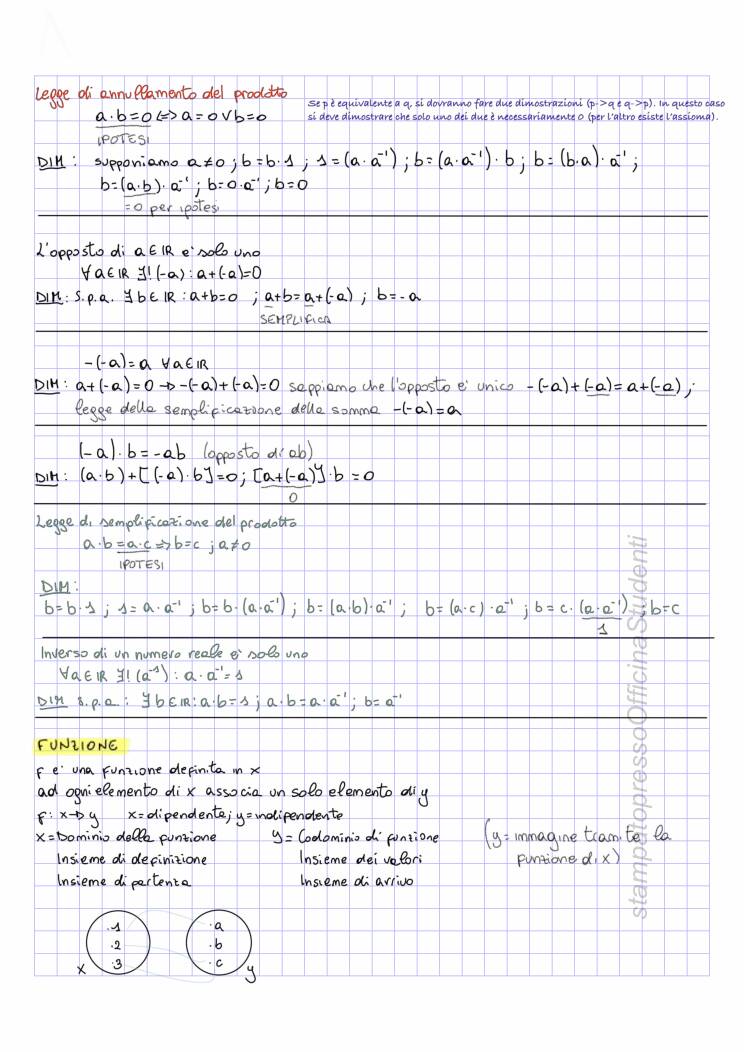 Legge di annullamento del prodotto
Se p è equivalente a q, si dovranno fare due dimostrazioni (p->q e q->p). In questo caso
si deve dimostrare che solo uno dei due è necessariamente 0 (per l'altro esiste l'assioma).
a·b=0 <=> a=0 ∨ b=0
IPOTESI
DIM: supponiamo a≠0; b=b·1; 1=(a·a⁻¹); b=(a·a⁻¹)·b; b=(b·a)·a⁻¹;
b=(a·b)·a⁻¹; b=0·a⁻¹; b=0
=0 per ipotesi
L'opposto di a∈IR e' solo uno
∀a∈IR ∃!(-a): a+(-a)=0
DIM: S.p.a. ∃b∈IR: a+b=0 ; a+b=a+(-a) ; b=-a
SEMPLIFICA
-(-a)=a ∀a∈IR
DIM: a+(-a)=0 → -(-a)+(-a)=0 sappiamo che l'opposto e' unico -(-a)+(-a)=a+(-a) ;
legge della semplificazione della somma -(-a)=a
(-a)·b=-ab (opposto di ab)
DIM: (a·b)+[(-a)·b]=0; [a+(-a)]·b=0
0
Legge di semplificazione del prodotto
a·b=a·c => b=c ; a≠0
IPOTESI
DIM:
b=b·1 ; 1=a·a⁻¹ ; b=b·(a·a⁻¹) ; b=(a·b)·a⁻¹ ; b=(a·c)·a⁻¹ ; b=c·(a·a⁻¹) ; b=c
1
Inverso di un numero reale e' solo uno
∀a∈IR ∃!(a⁻¹): a·a⁻¹=1
DIM s.p.a.: ∃b∈IR: a·b=1 ; a·b=a·a⁻¹ ; b=a⁻¹
FUNZIONE
f e' una funzione definita in x
ad ogni elemento di x associa un solo elemento di y
f: x→y x=dipendente; y=indipendente
x=Dominio della funzione y=Codominio di funzione (y=immagine tramite la
Insieme di definizione Insieme dei valori funzione di x)
Insieme di partenza Insieme di arrivo
·1 ·a
·2 ·b
·3 ·c
x y
stampatopressoOfficinaStudenti